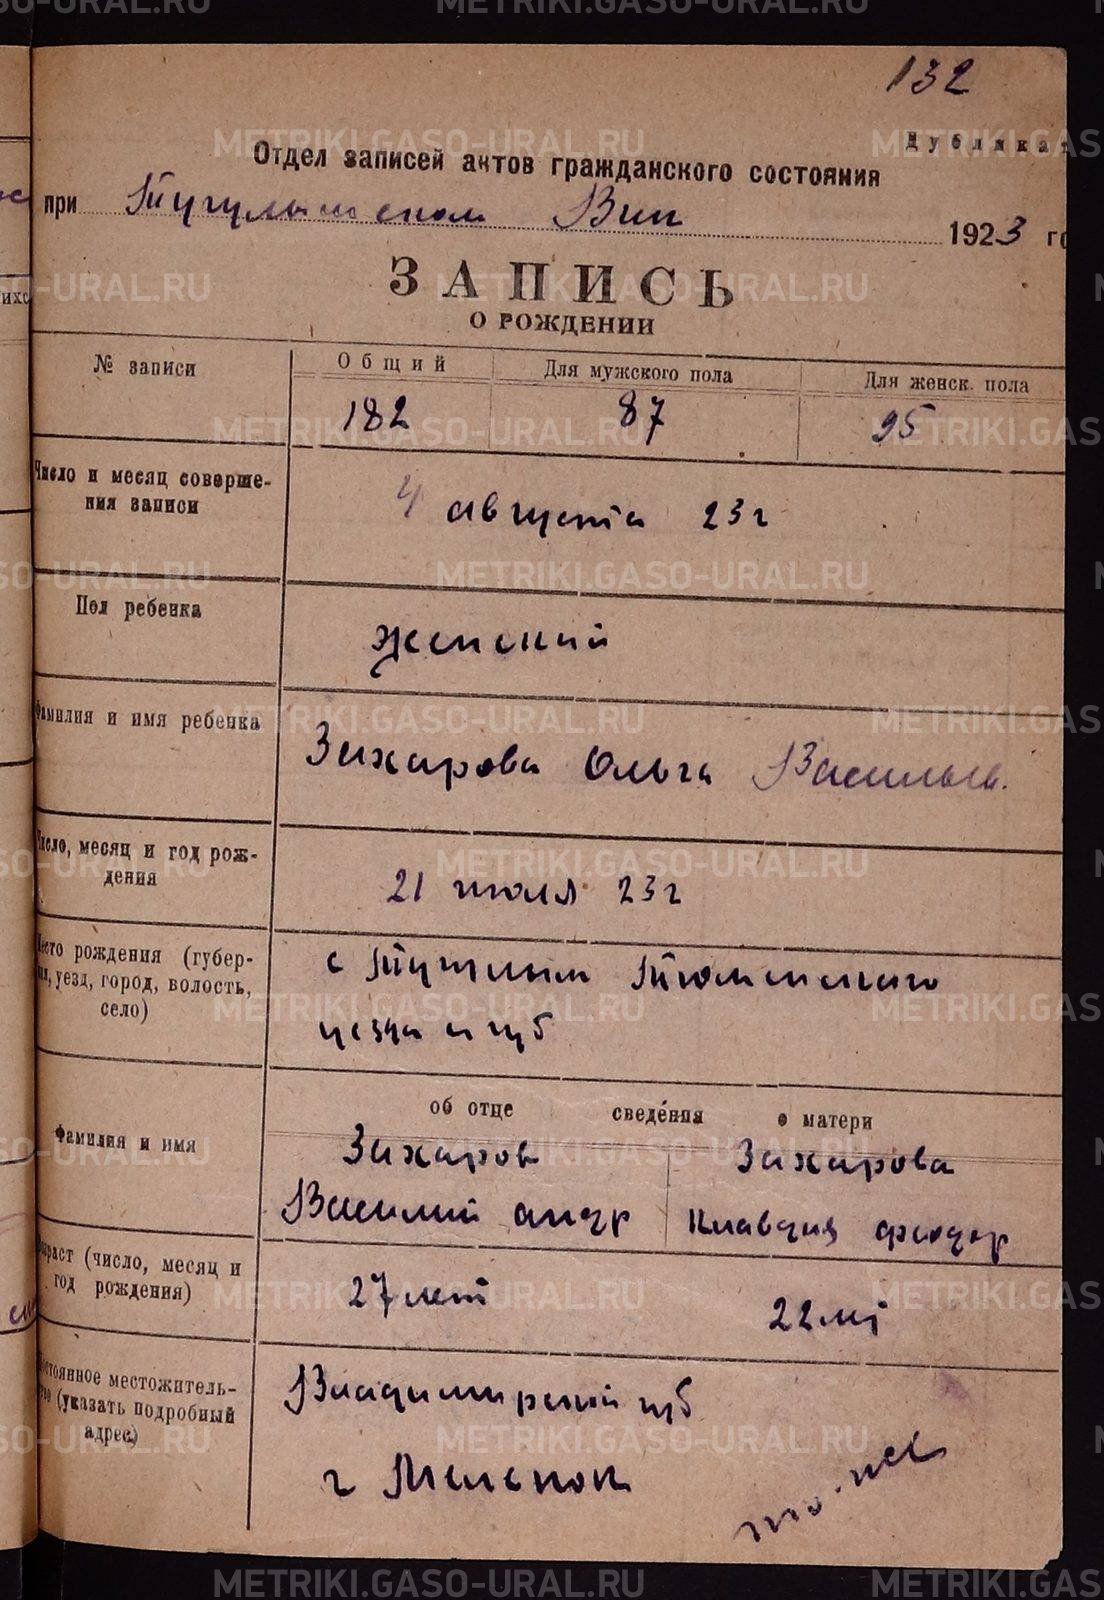 132
Дубликат
Отдел записей актов гражданского состояния
при Тугулымском Вик 1923 го
ЗАПИСЬ
О РОЖДЕНИИ
№ записи
Общий Для мужского пола Для женск. пола
182 87 95
Число и месяц совершения записи
4 августа 23 г
Пол ребенка
женский
Фамилия и имя ребенка
Захарова Ольга Васильев.
Число, месяц и год рождения
21 июля 23 г
Место рождения (губерния, уезд, город, волость, село)
с Тугулым Тюменского
уезда и губ
об отце сведения о матери
Фамилия и имя
Захаров Захарова
Василий андр Клавдия феодор
Возраст (число, месяц и год рождения)
27 лет 22 лет
Постоянное местожительство (указать подробный адрес)
Владимирской губ
г Меленок
METRIKI.GASO-URAL.RU